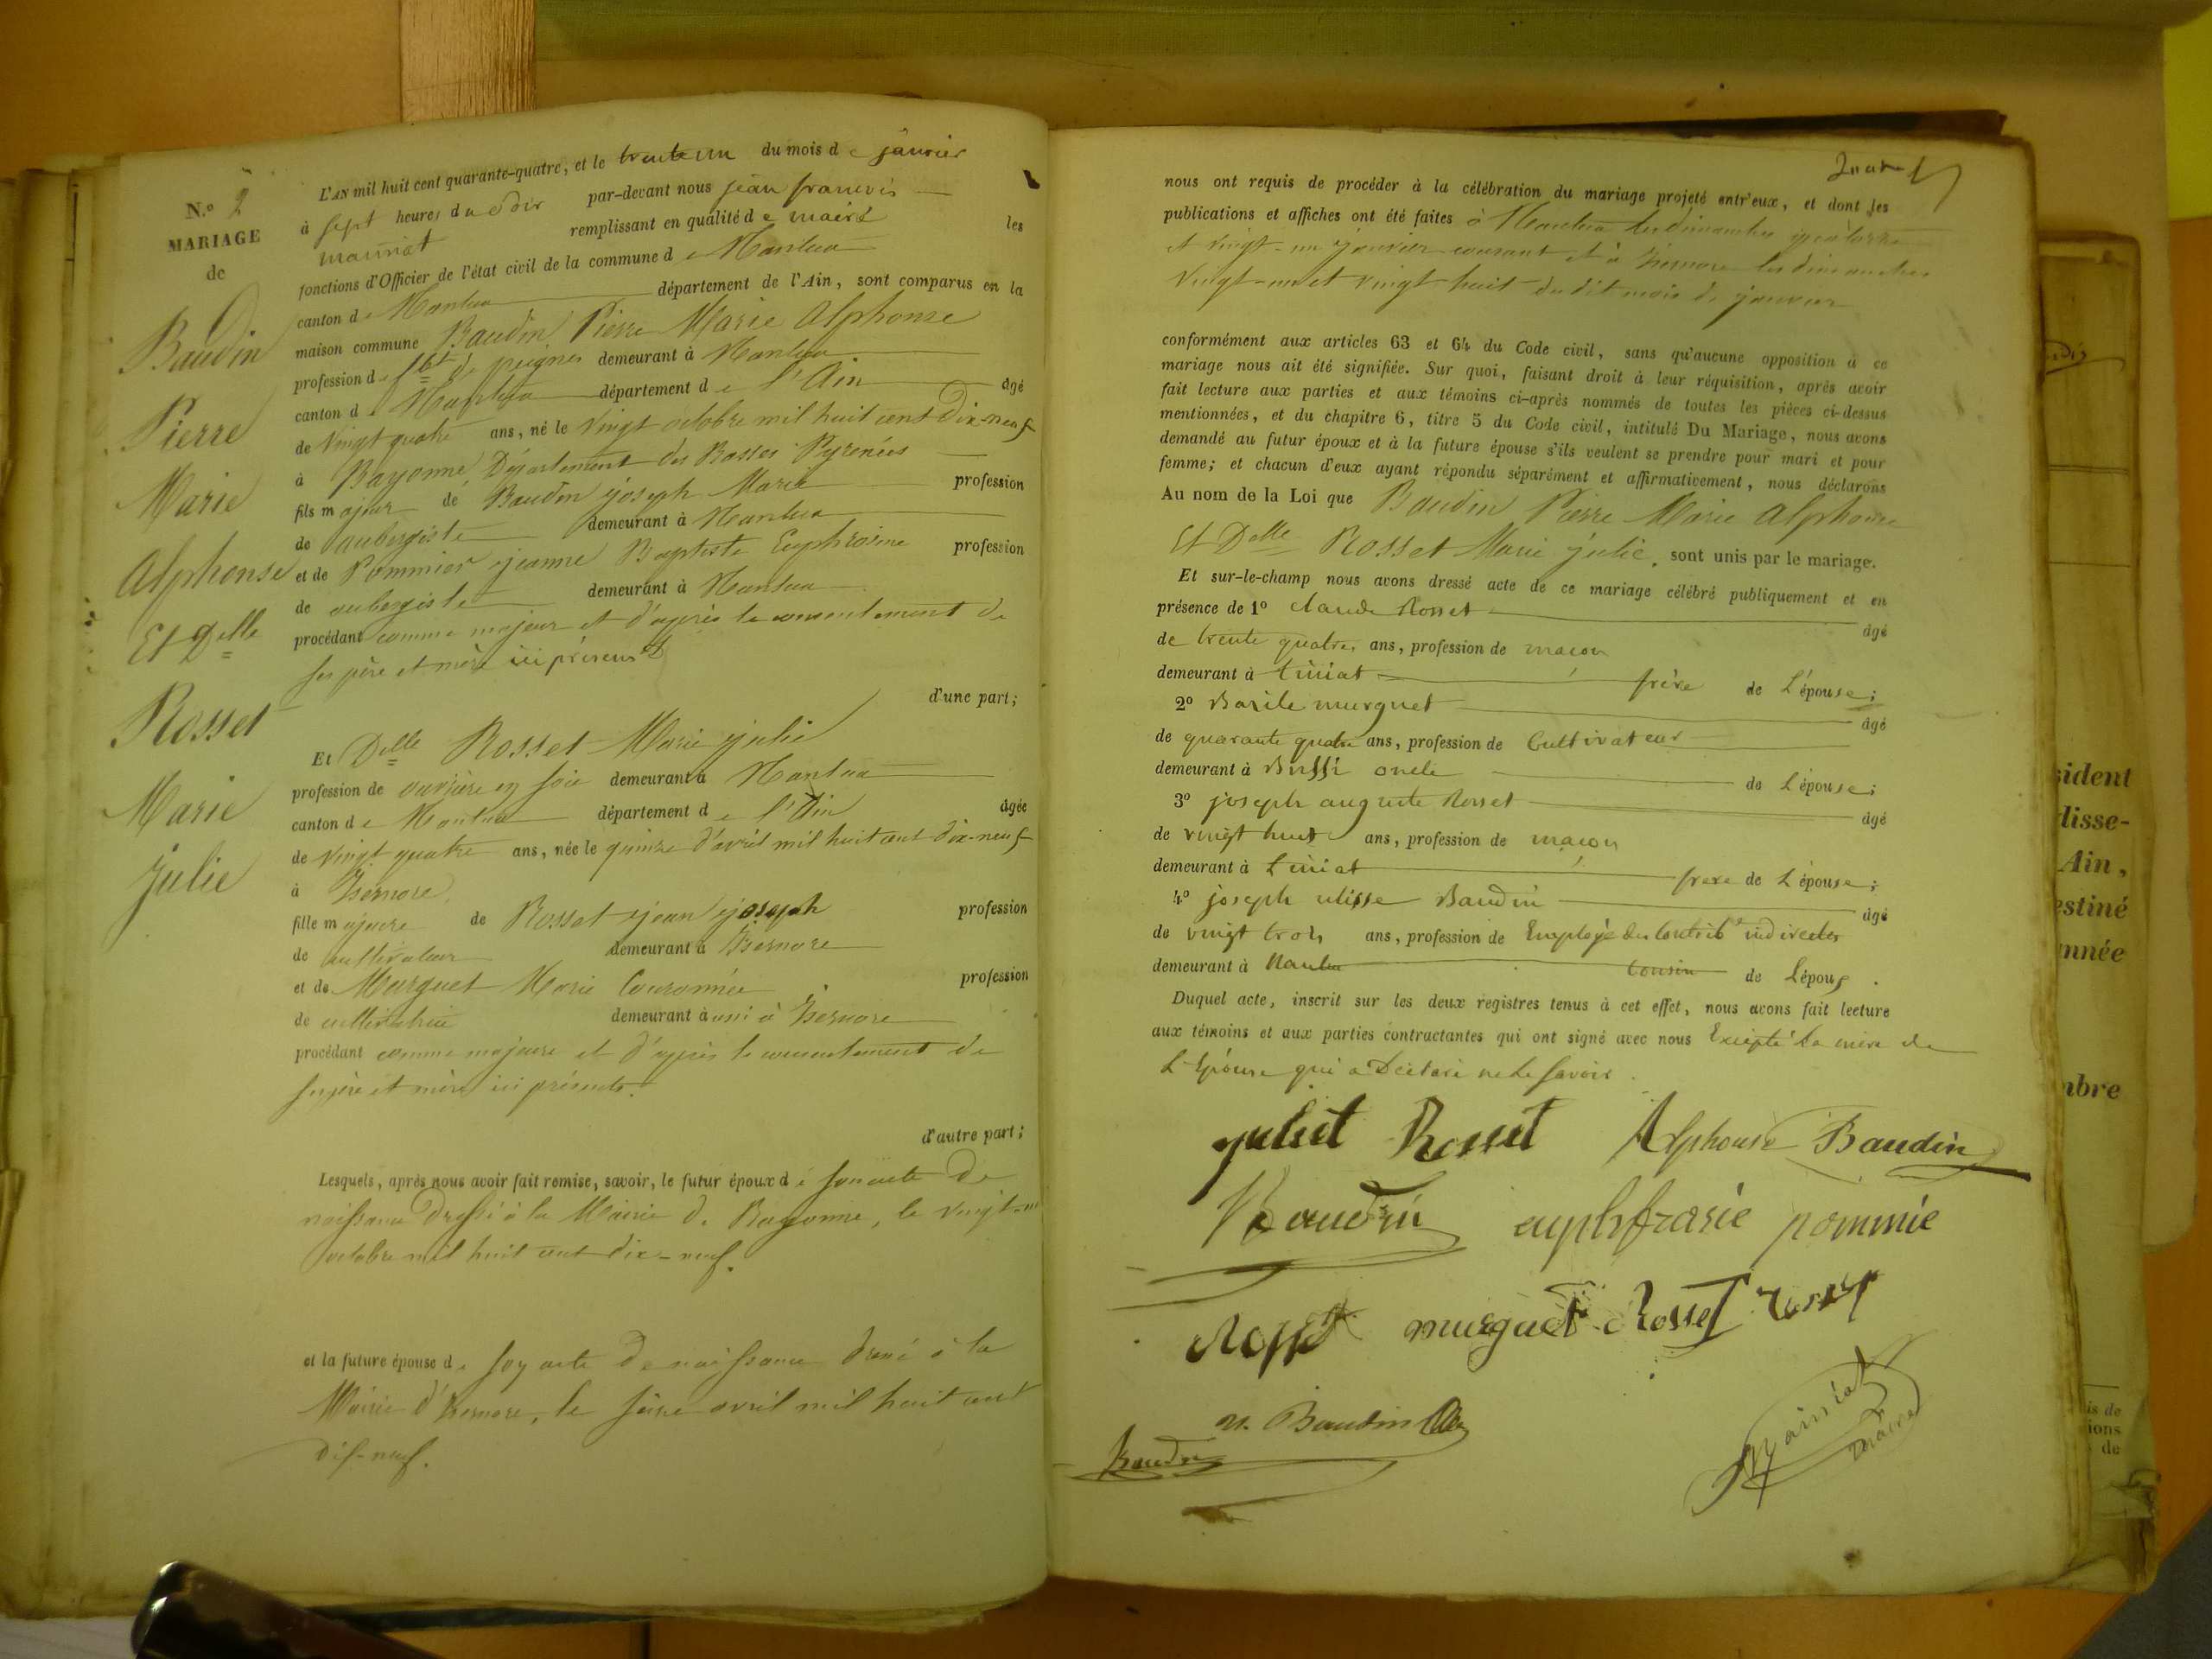 N.o 2
MARIAGE
de
Baudin
Pierre
Marie
Alphonse
Et Delle
Rosset
Marie
Julie
L'AN mil huit cent quarante-quatre, et le trente un du mois de janvier
à sept heures du soir par-devant nous jean francois
mauriat remplissant en qualité de maire les
fonctions d'Officier de l'état civil de la commune de Nantua
canton de Nantua département de l'Ain, sont comparus en la
maison commune Baudin Pierre Marie Alphonse
profession de fbt de peignes demeurant à Nantua
canton de Nantua département de l'Ain âgé
de vingt quatre ans, né le vingt octobre mil huit cent dix-neuf
à Bayonne, Département des Basses Pyrenées
fils majeur de Baudin joseph Marie profession
de aubergiste demeurant à Nantua
et de Pommier jeanne Baptiste Euphrosine profession
de aubergiste demeurant à Nantua
procédant comme majeur et d'après le consentement de
ses père et mère ici présents
d'une part;
Et Delle Rosset Marie julie
profession de ouvrière en soie demeurant à Nantua
canton de Nantua département de l'Ain âgée
de vingt quatre ans, née le quinze d'avril mil huit cent dix-neuf
à Izernore
fille majeure de Rosset jean joseph profession
de cultivateur demeurant à Izernore
et de Murguet Marie Couronnée profession
de cultivatrice demeurant à aussi à Izernore
procédant comme majeure et d'après le consentement de
ses père et mère ici présents.
d'autre part;
Lesquels, après nous avoir fait remise, savoir, le futur époux de son acte de
naissance dressé à la Mairie de Bayonne, le vingt-un
octobre mil huit cent dix-neuf.
et la future épouse de son acte de naissance dressé à la
Mairie d'Izernore, le seize avril mil huit cent
dix-neuf.
nous ont requis de procéder à la célébration du mariage projeté entr'eux, et dont les
publications et affiches ont été faites à Nantua les dimanches quatorze
et vingt-un janvier courant et à Izernore les dimanches
vingt-un et vingt huit du dit mois de janvier
conformément aux articles 63 et 64 du Code civil, sans qu'aucune opposition à ce
mariage nous ait été signifiée. Sur quoi, faisant droit à leur réquisition, après avoir
fait lecture aux parties et aux témoins ci-après nommés de toutes les pièces ci-dessus
mentionnées, et du chapitre 6, titre 5 du Code civil, intitulé Du Mariage, nous avons
demandé au futur époux et à la future épouse s'ils veulent se prendre pour mari et pour
femme; et chacun d'eux ayant répondu séparément et affirmativement, nous déclarons
Au nom de la Loi que Baudin Pierre Marie Alphonse
Et Delle Rosset Marie julie, sont unis par le mariage.
Et sur-le-champ nous avons dressé acte de ce mariage célébré publiquement et en
présence de 1o Claude Rosset âgé
de trente quatre ans, profession de maçon
demeurant à frère de L'épouse;
2o Basile murguet âgé
de quarante quatre ans, profession de Cultivateur
demeurant à Bussi oncle de L'épouse;
3o joseph auguste Rosset âgé
de vingt huit ans, profession de maçon
demeurant à frere de L'épouse;
4o joseph ulisse Baudin âgé
de vingt trois ans, profession de Employé des Contribs indirectes
demeurant à Nantua cousin de L'époux.
Duquel acte, inscrit sur les deux registres tenus à cet effet, nous avons fait lecture
aux témoins et aux parties contractantes qui ont signé avec nous Excepté la mère de
L'épouse qui a Déclaré ne le savoir.
juliet Rosset Alphonse Baudin
Baudin euphfrasie pommie
Rosset murguet Rosset rosset
u. Baudin
Baudin
Mauriat
maire